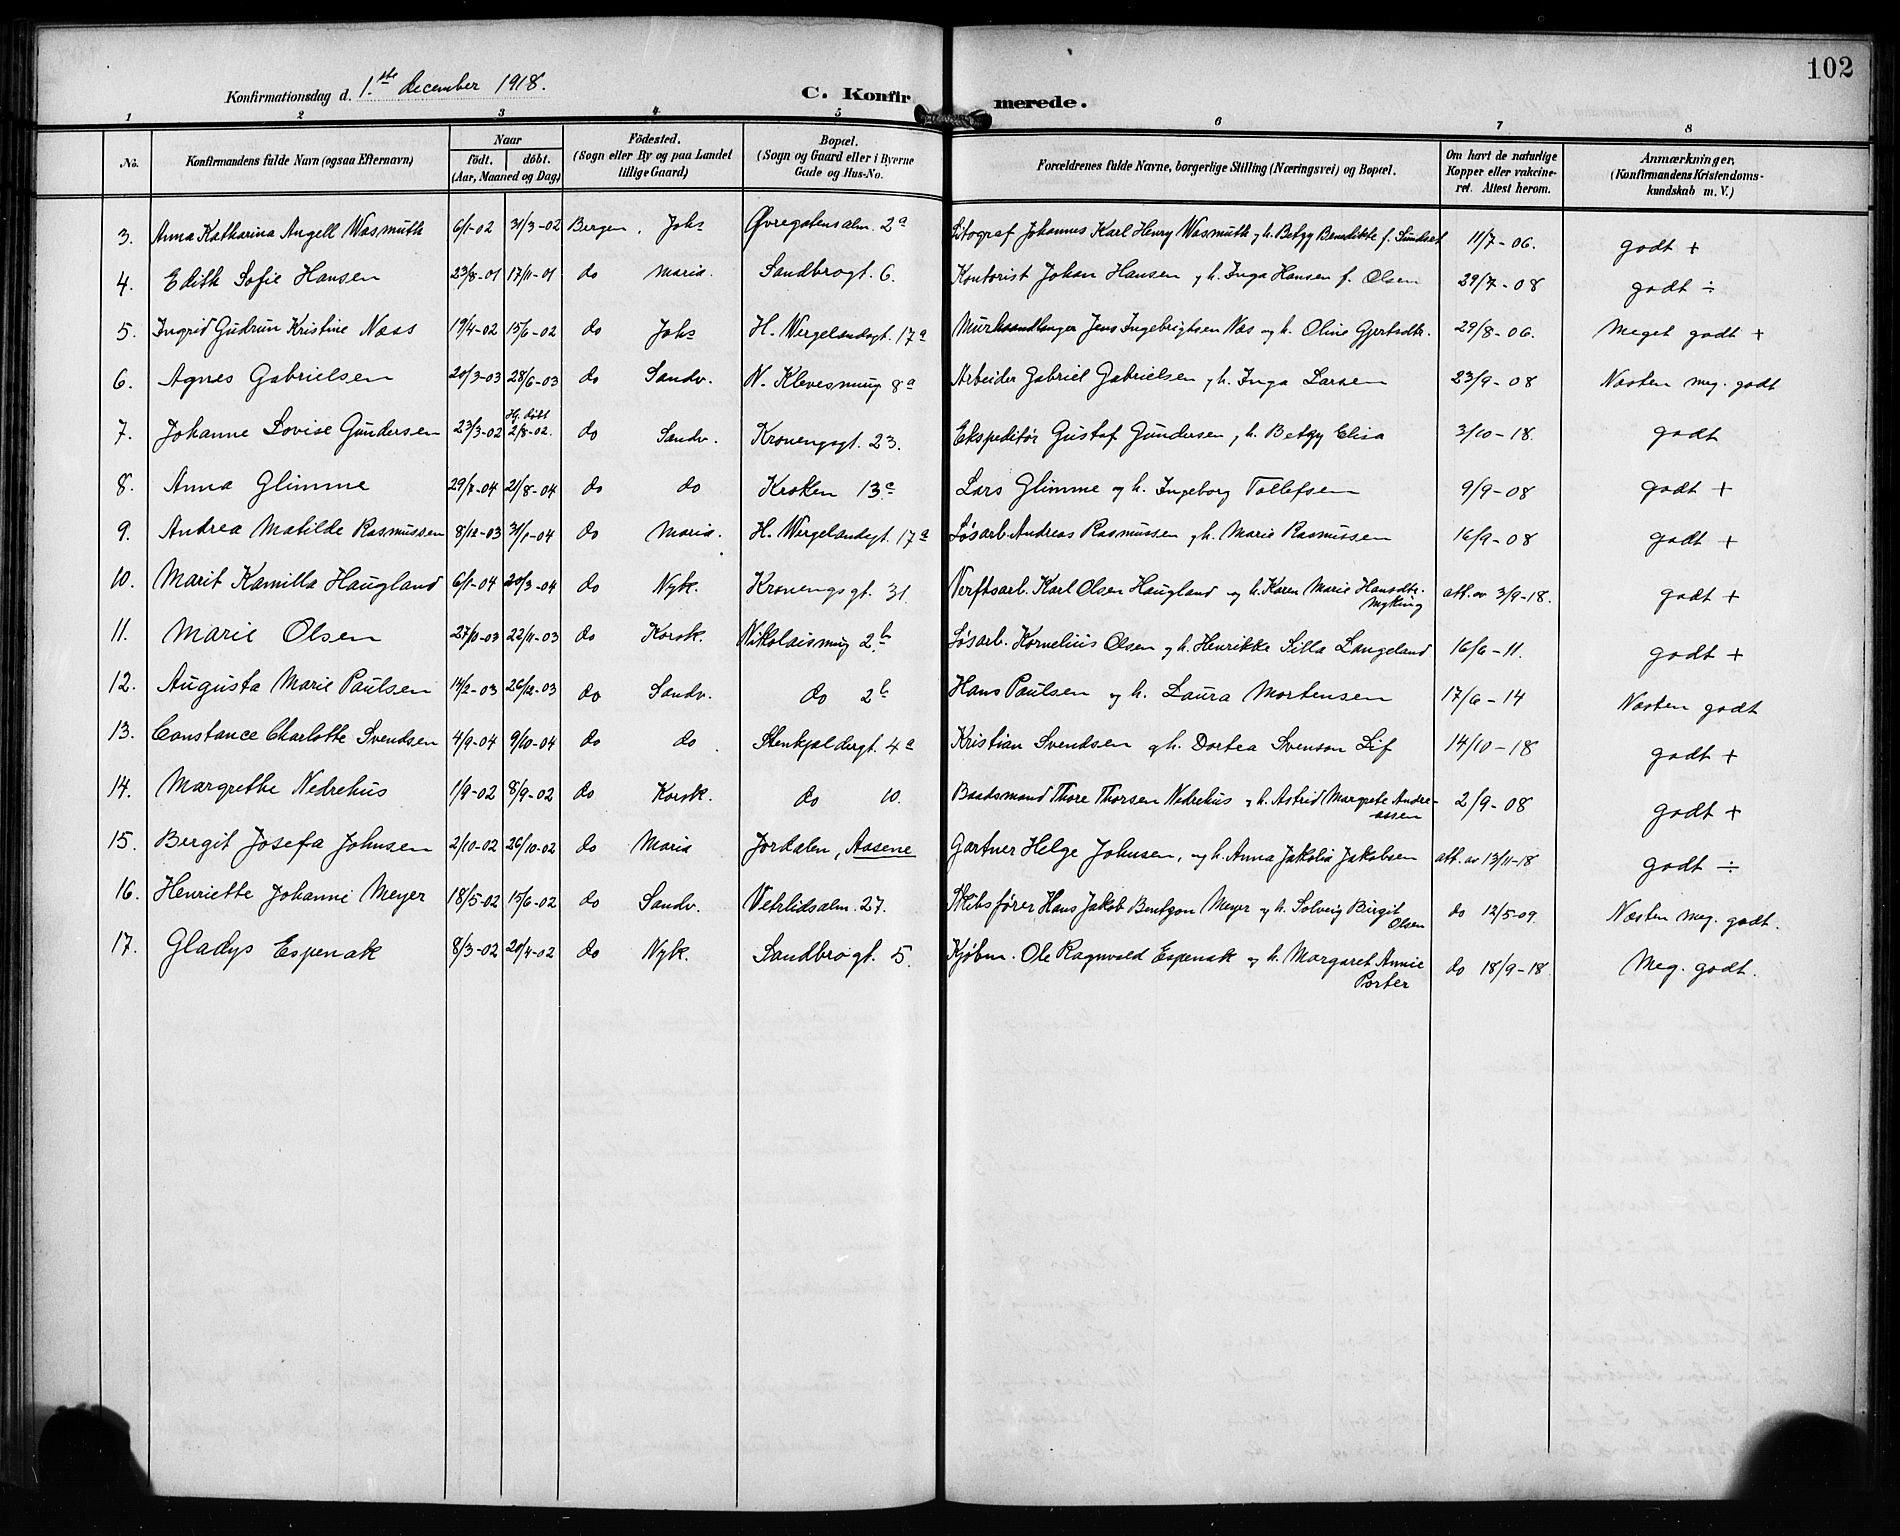 102
Konfirmationsdag d. 1.ste december 1918.
C. Konfirmerede.
1 2 3 4 5 6 7 8
No.
Konfirmandens fulde Navn (ogsaa Efternavn)
Naar
födt. döbt.
(Aar, Maaned og Dag)
Födested.
(Sogn eller By og paa Landet
tillige Gaard)
Bopæl.
(Sogn og Gaard eller i Byerne
Gade og Hus-No.
Forældrenes fulde Navne, borgerlige Stilling (Næringsvei) og Bopæl.
Om havt de naturlige
Kopper eller vakcine-
ret. Attest herom.
Anmærkninger,
(Konfirmandens Kristendoms-
kundskab m. V.)
3. Anna Katharina Angell Wasmuth 6/1-02 31/3-02 Bergen. Johs Øvregatensalm. 2a Litograf Johannes Karl Henry Wasmuth og h. Betzy Benedikte f. Sundset 11/7-06. godt +
4. Edith Sofie Hansen 23/8-01 17/11-01 do Maria. Sandbrogt. 6. Kontorist Johan Hansen og h. Inga Hansen f. Olsen 29/7-08 godt ÷
5. Ingrid Gudrun Kristine Næss 19/4-02 15/6-02 do Johs H. Wergelandsgt. 17a Murhaandlanger Jens Ingebrigtsen Næs og h. Oline Gjertsdtr. 29/8-06. Meget godt +
6. Agnes Gabrielsen 20/3-03 28/6-03 do Sandv. N. Klevesmug 8a Arbeider Gabriel Gabrielsen og h. Inga Larsen 23/9-08 Næsten meg. godt
7. Johanne Lovise Gundersen 23/3-02 Hj. døbt 2/8-02. do Sandv. Kronengsgt. 23. Ekspeditør Gustaf Gundersen og h. Betzy Elisa 3/10-18. godt
8. Anna Glimme 29/7-04 21/8-04 do do Kroken 13c Lars Glimme og h. Ingeborg Tollefsen 9/9-08 godt +
9. Andrea Matilde Rasmussen 8/12-03 31/1-04 do Maria. H. Wergelandsgt. 17a Løsarb. Andreas Rasmussen og h. Marie Rasmussen 16/9-08 godt +
10. Marit Kamilla Haugland 6/1-04 20/3-04 do Nyk. Kronengsgt. 31. Verftsarb. Karl Olsen Haugland og h. Karen Marie Hansdtr. Myking att. av 3/9-18. godt +
11. Marie Olsen 27/10-03 22/11-03 do Korsk. Nikolaismug 2b Løsarb. Kornelius Olsen og h. Henrikke Silla Langeland 16/6-11. godt +
12. Augusta Marie Paulsen 14/2-03 26/12-03 do Sandv. do 2b Hans Paulsen og h. Laura Mortensen 17/6-14 Næsten godt
13. Constance Charlotte Svendsen 4/9-04 9/10-04 do do. Stenkjeldergt. 4a Kristian Svendsen og h. Dortea Svenson Lif 14/10-18 godt +
14. Margrethe Nedrehus 1/9-02 8/9-02 do Korsk. do 10. Baadsmand Thore Thorsen Nedrehus og h. Astrid Margrete Andreassen 2/9-08 godt +
15. Bergit Josefa Johnsen 2/10-02 26/10-02 do Maria Jordalen, Aasene Gartner Helge Johnsen, og h. Anna Jakolia Jakobsen att. av 13/11-18 godt ÷
16. Henriette Johanne Meyer 18/5-02 15/6-02 do Sandv. Vetrlidsalm. 27. Skibsfører Hans Jakob Bentzon Meyer og h. Solveig Birgit Olsen do 12/5-09. Næsten meg. godt.
17. Gladys Espenak 8/3-02 20/4-02 do Nyk. Sandbrogt. 5. Kjøbm. Ole Ragnvald Espenak og h. Margaret Annie Porter do 18/9-18. Meg. godt.